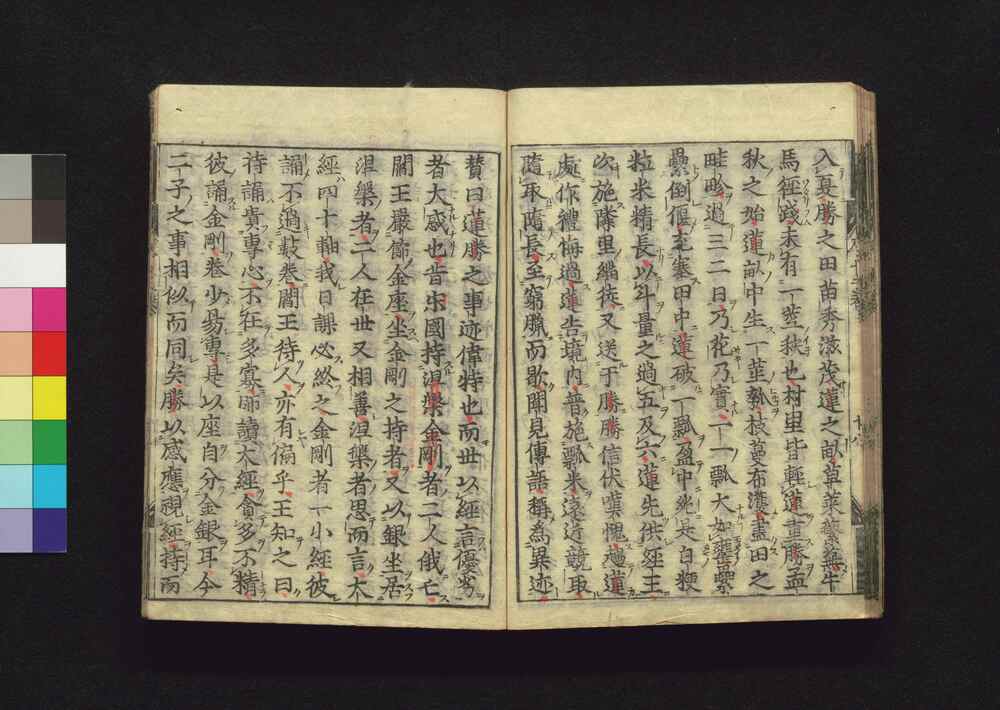 入夏勝之田苗秀滋茂蓮之畝草萊蘩蕪牛
馬徑踐未有一莖秧也村里皆輕蓮重勝孟
秋之始蓮畝中生一莖瓠枝蔓布濩盡田之
畦畛過三二日乃花乃實二一瓢大如甖
纍倒偃充塞田中蓮破一瓢盈中純是白粳
粒米精長以斗量之過五及六蓮先供經王
次施隣里緇徒又送于勝勝信伏嘆愧過蓮
處作禮悔過蓮告境內普施瓢米遠近競取
隨取隨長至窮臘而歇聞見傳語稱爲異迹
賛曰蓮勝之事迹偉特也而世以經言優劣
者大惑也昔宋國持涅槃金剛者二人俄亡
閻王嚴飾金座坐金剛之持者又以銀坐居
涅槃者二人在世又相善涅槃者思而言大
經四十軸我日課必終之金剛者一小經彼
誦不過數卷閻王待人亦有偏乎王知之曰
待誦貴專心不在多寡師讀大經貪多不精
彼誦金剛卷少易專是以座自分金銀耳今
二子之事相似而同矣勝以感應視經持而